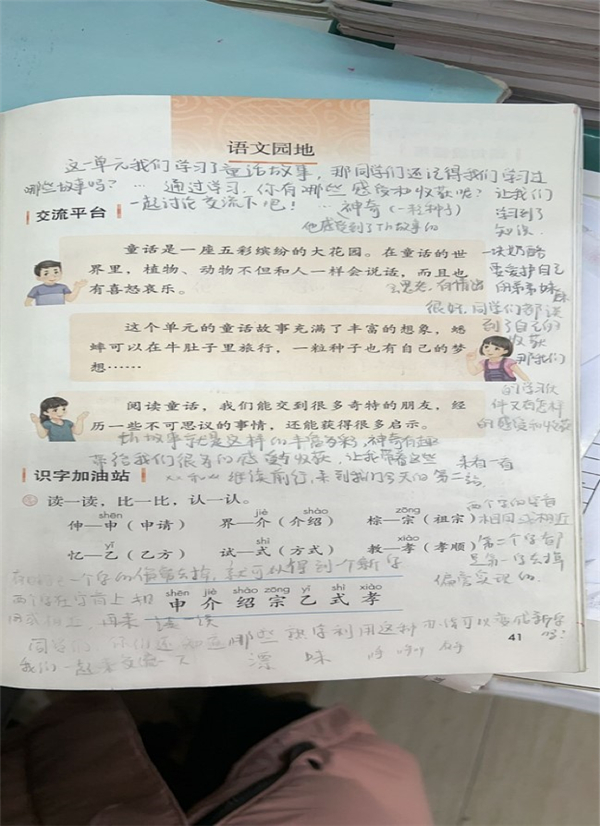 语文园地
这一单元我们学习了童话故事，那同学们还记得我们学习过
哪些故事吗？… 通过学习，你有哪些感受和收获呢？让我们
一起讨论交流下吧！… 神奇（一粒种子）
学习到了
知识
交流平台
他感受到了
故事的
童话是一座五彩缤纷的大花园。在童话的世
界里，植物、动物不但和人一样会说话，而且也
有喜怒哀乐。
一块奶酪
要爱护自己
的弟弟妹妹
很好，同学们都谈
到了自己的
收获
那我们
这个单元的童话故事充满了丰富的想象，蟋
蟀可以在牛肚子里旅行，一粒种子也有自己的梦
想……
阅读童话，我们能交到很多奇特的朋友，经
历一些不可思议的事情，还能获得很多启示。
的学习伙
伴又有怎样
的感受和收获
故事就是这样的丰富多彩，神奇有趣
带给我们很多的感受与收获，让我带着这些
来看一看
继续前行，来到我们今天的第二站
识字加油站
读一读，比一比，认一认。
shēn jiè shào zōng
伸—申（申请） 界—介（介绍） 棕—宗（祖宗）
yǐ shì xiào
忆—乙（乙方） 试—式（方式） 教—孝（孝顺）
两个字的读音
相同或相近
第二个字都
是第一字去掉
偏旁实现的
一个字的偏旁去掉，就可以得到一个新字
shēn jiè shào zōng yǐ shì xiào
申 介 绍 宗 乙 式 孝
两个字在字音上相
同或相近，再来读一读
同学们，你们还知道哪些 识字利用这种方法可以变成新字
吗？
我们一起来交流一下 漂 妹
41